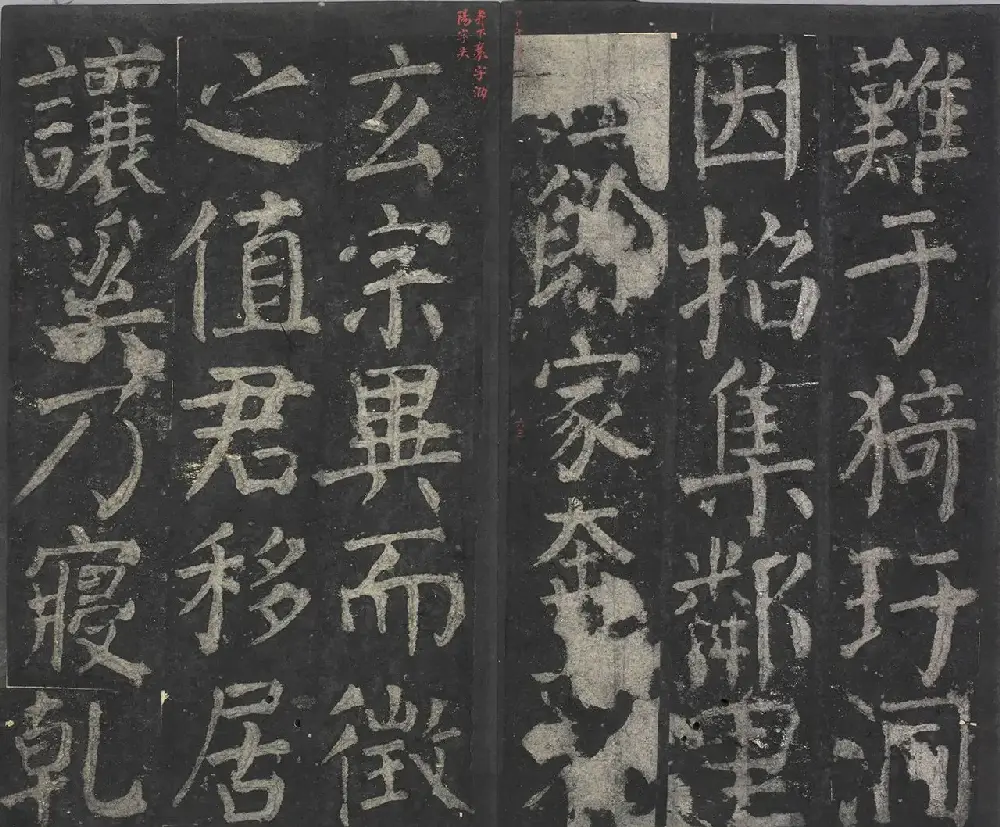 難于猗玗洞
因招集鄰里
餘家奔
奔下襄字泐
陽字失
玄宗異而徵
之值君移居
讓溪乃寢乾